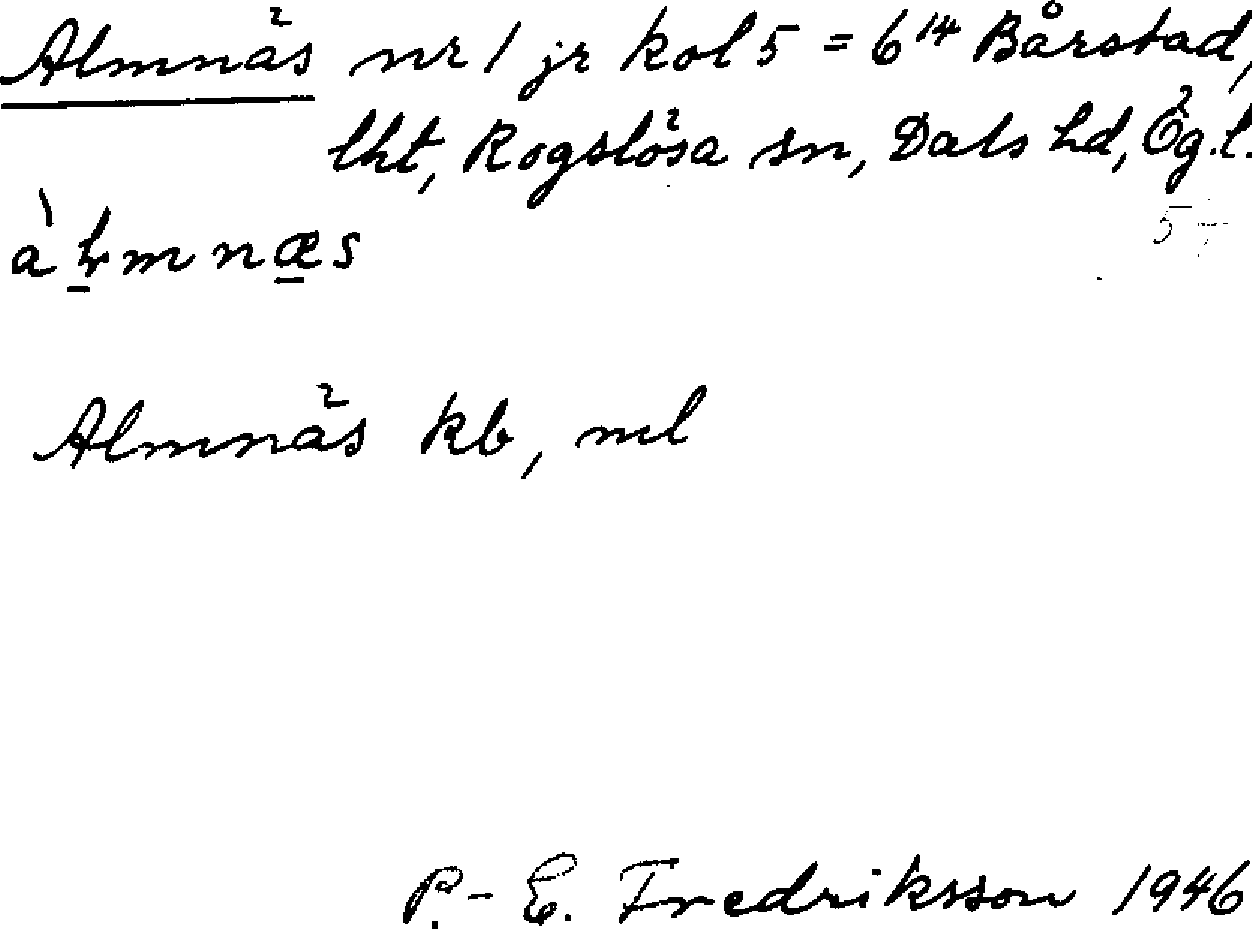 Almnäs nr 1 jr kol 5 = 6¹⁴ Bårstad,
lht, Rogslösa sn, Dals hd, Ög.l.
Almnäs kb, ml
P.-E. Fredriksson 1946